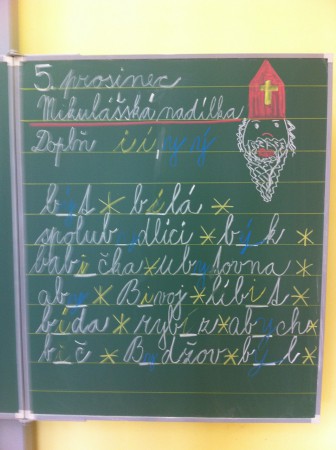 5. prosinec
Mikulášská nadílka
Doplň i í, y ý
být * bílá *
spolubydlící * býk *
babička * ubytovna *
aby * Bivoj * líbit *
bída * rybíz * abych *
bič * Bydžov * byl *